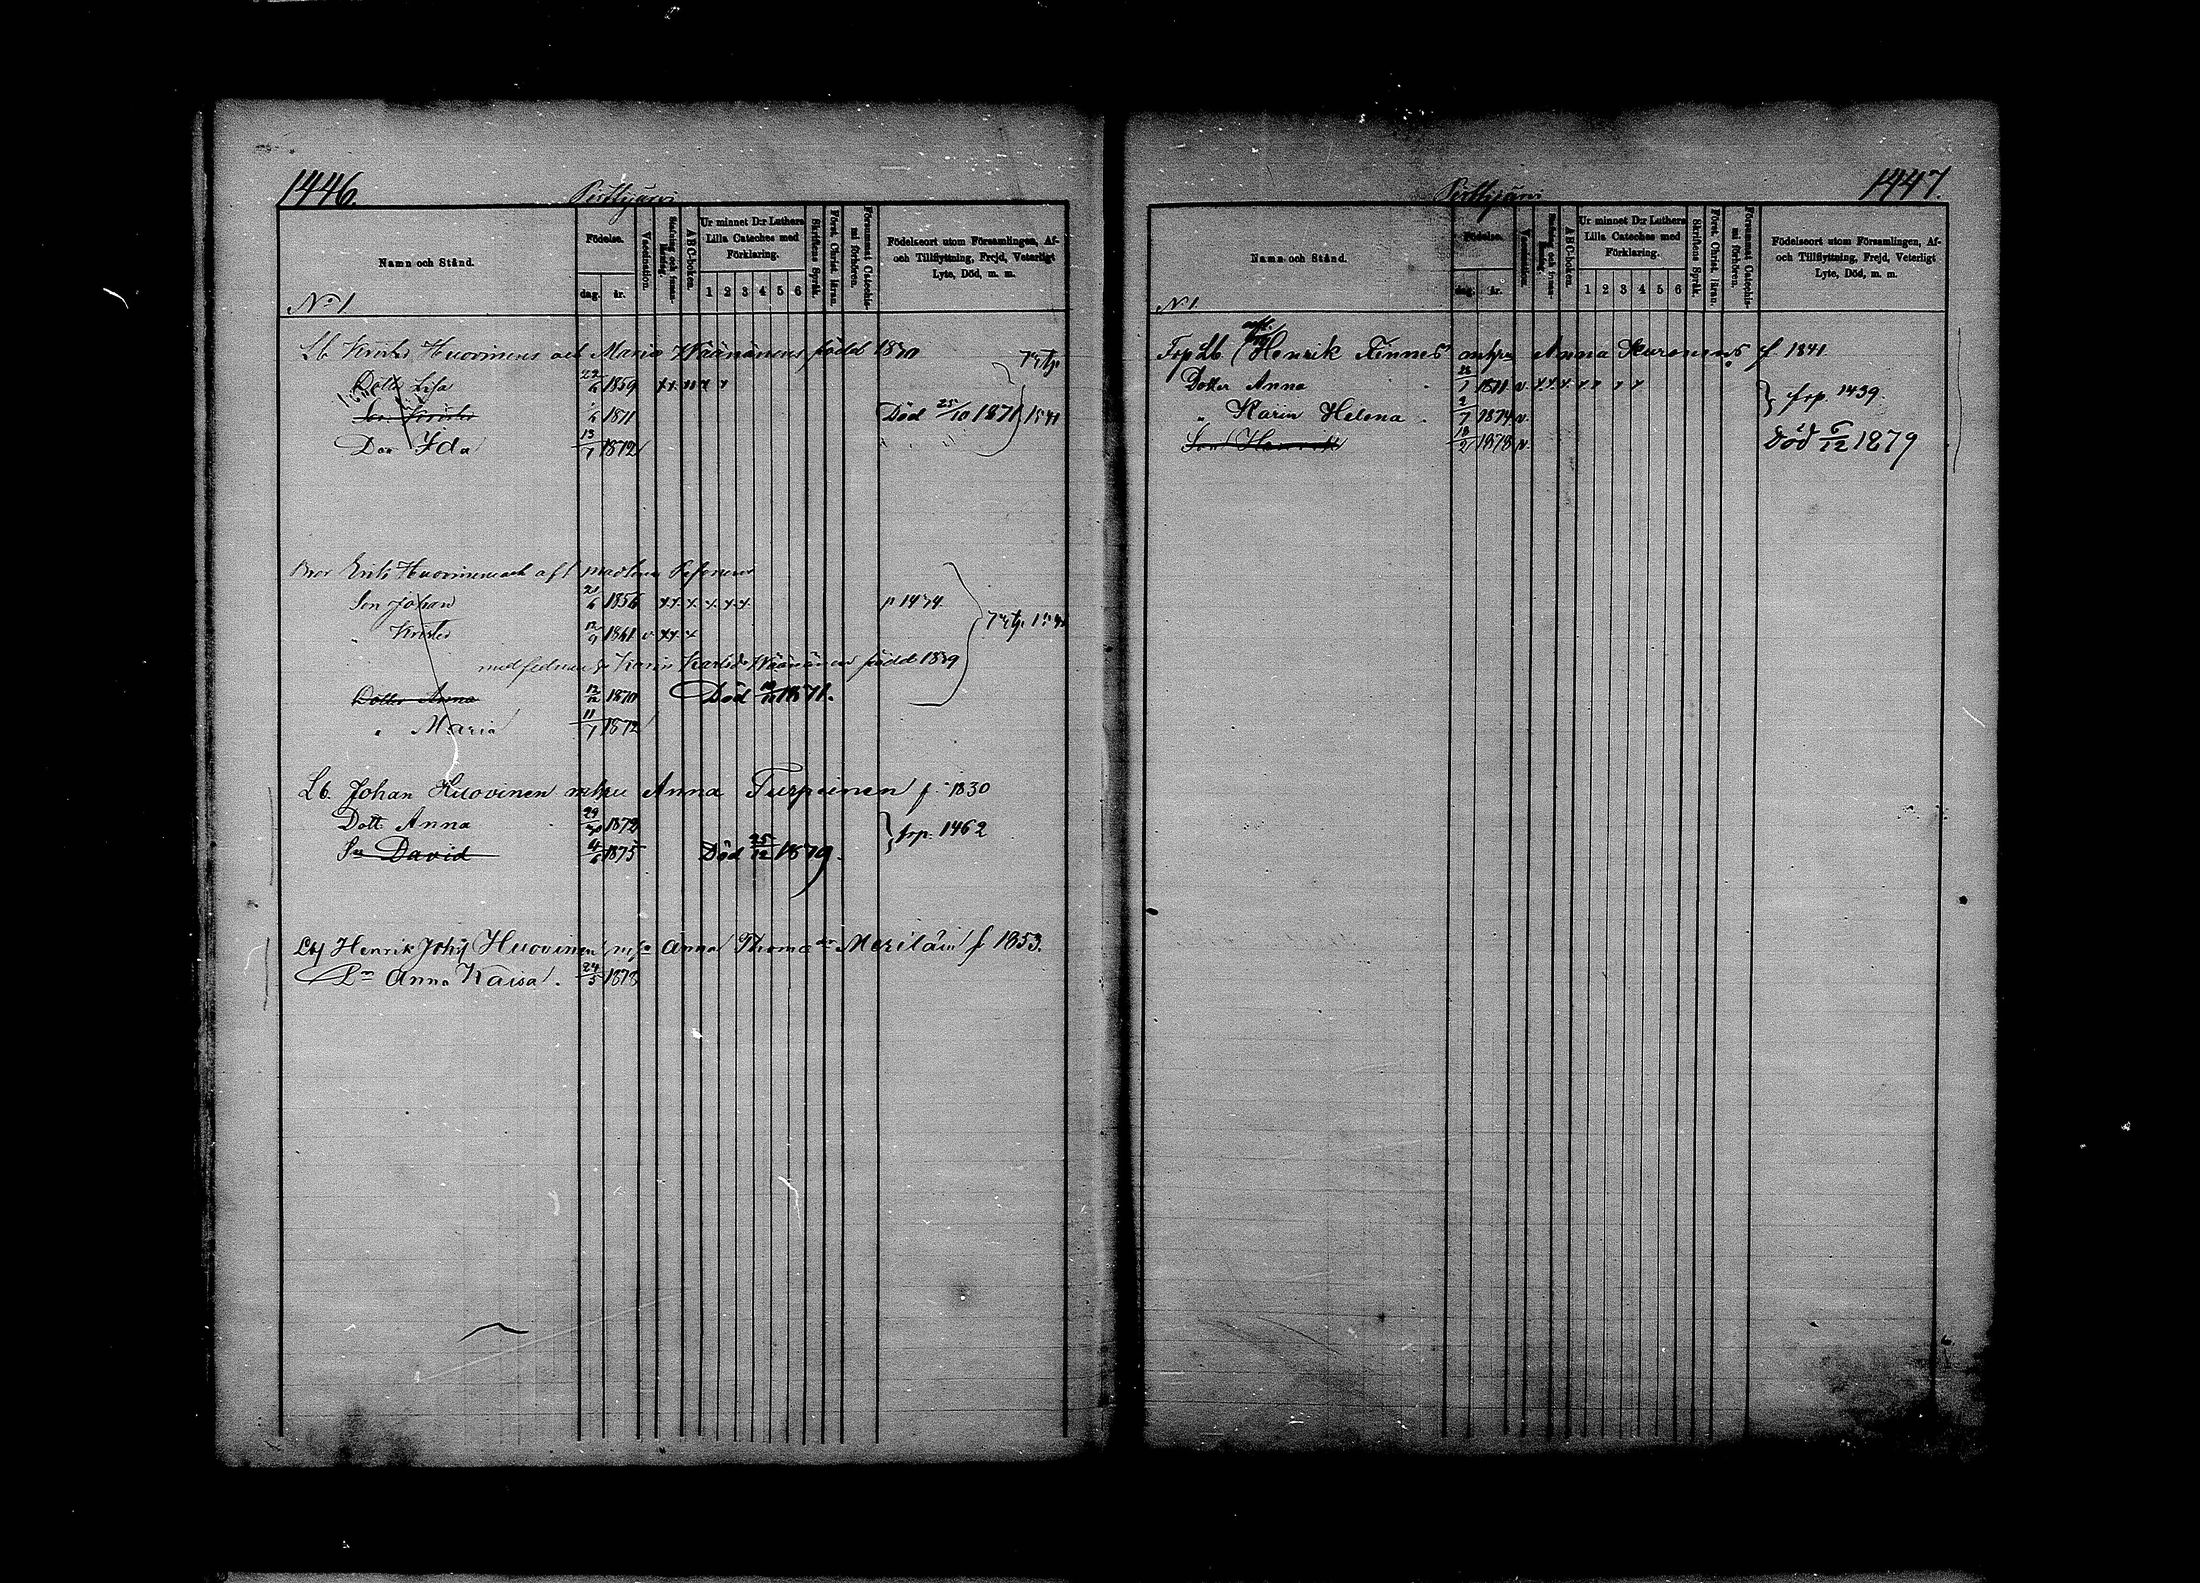 1446.
Pirttijärvi
Namn och Stånd.
Födelse.
dag. år.
Vaccination.
Stafning och innan-läsning.
ABC-boken.
Ur minnet D:r Luthers Lilla Cateches med Förklaring.
1 2 3 4 5 6
Skriftens Språk.
Först. Christ. läran.
Försummat Catechismi förhören.
Födelseort utom Församlingen, Af- och Tillflyttning, Frejd, Veterligt Lyte, Död, m. m.
No 1
Lb Krister Huovinens och Maria Wäänänens född 1830
Dotter Lisa 22/6 1859 x x x x x
Son Krister 1871 Död 25/10 1871
Dor Ida 13/1 1872
Bror Eriks Huovinens och
Son Johan 6 1856 x x x x x x p 1474
" Krister 12/9 1861 v x x x
Karin Karlsdr Wäänänens född 1839
Dotter Anna 12/12 1870 Död 1871.
" Maria 11/1 1872
Lb. Johan Huovinen mhru Anna Turpeinen f. 1830
Dott Anna 29/10 1872
frp. 1462
Sn David 4/6 1875 Död 25/12 1879.
Lbs Henrik Johs Huovinen, Anna Thomadr Meriläin f 1853.
Anna Kaisa. 24/5 1878
1447.
Pirttijärvi
Namn och Stånd.
Födelse.
dag. år.
Vaccination.
Stafning och innan-läsning.
ABC-boken.
Ur minnet D:r Luthers Lilla Cateches med Förklaring.
1 2 3 4 5 6
Skriftens Språk.
Först. Christ. läran.
Försummat Catechismi förhören.
Födelseort utom Församlingen, Af- och Tillflyttning, Frejd, Veterligt Lyte, Död, m. m.
N 1
Lb Henrik Kinnes mhru Anna Kuronens f 1841
Dotter Anna 1871 v. x x x x x x x
frp. 1439.
" Karin Helena. 2/7 1874 v.
Son Henrik 18/2 1878 v. Död 6/12 1879